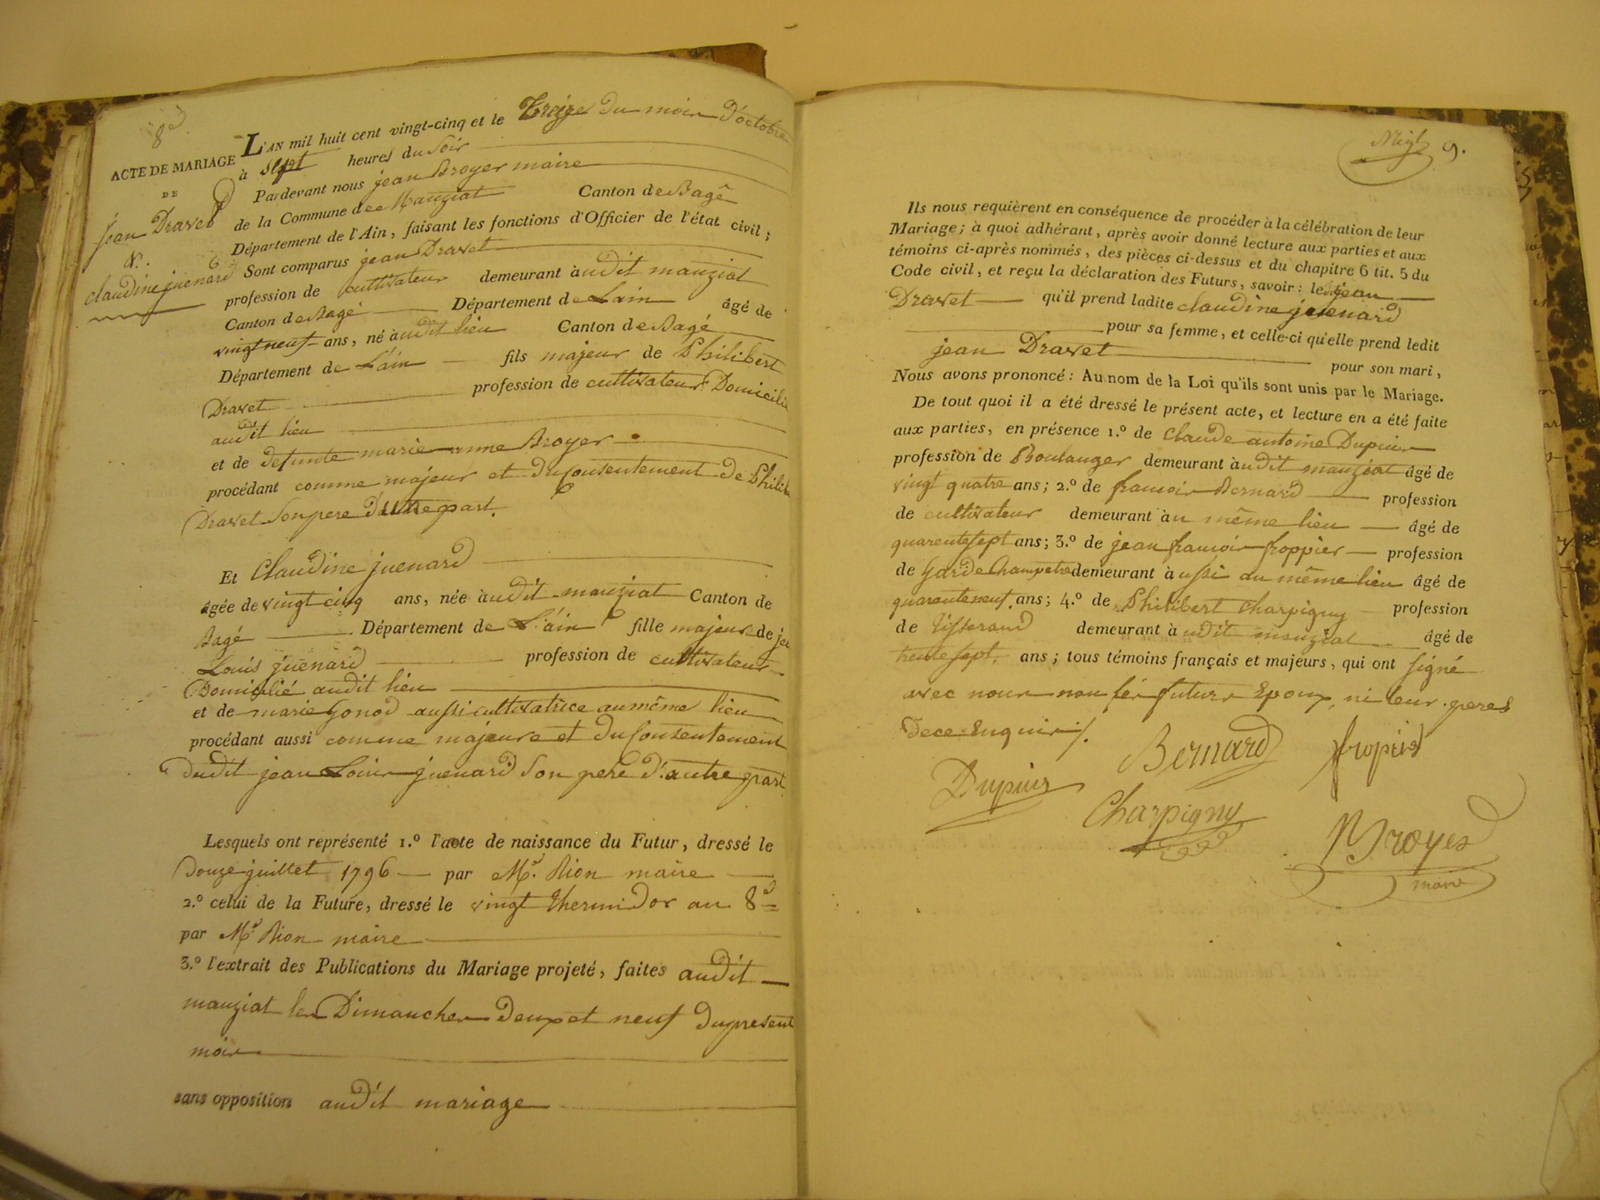 8e.
ACTE DE MARIAGE
DE
jean Dravet
&.
claudine juenard
L'AN mil huit cent vingt-cinq et le Treize du mois D'octobre
à sept heures du soir
Pardevant nous jean Broyer maire
de la Commune de Manziat Canton de Bagé
Département de l'Ain, faisant les fonctions d'Officier de l'état civil;
Sont comparus jean Dravet
profession de cultivateur demeurant audit manziat
Canton de Bagé Département de Lain âgé de
vingt neuf ans, né audit lieu Canton de Bagé
Département de L'ain fils majeur de Philibert
Dravet profession de cultivateur Domicilié
audit lieu
et de defunte marie anne Broyer
procédant comme majeur et du consentement de Philib
Dravet son pere d'une part.
Et Claudine juenard
âgée de vingt cinq ans, née audit manziat Canton de
Bagé Département de L'ain fille majeure de jea
Louis juenard profession de cultivateur
Domicilié audit lieu
et de marie Gonod aussi cultivatrice au même lieu
procédant aussi comme majeure et du consentement
dudit jean Louis juenard son pere d'autre part
Lesquels ont représenté 1.º l'acte de naissance du Futur, dressé le
Douze juillet 1796 par Mr. Rion maire
2.º celui de la Future, dressé le vingt thermidor an 8e
par Mr Rion maire
3.º l'extrait des Publications du Mariage projeté, faites audit
manziat les Dimanches Deux et neuf du present
mois
sans opposition audit mariage
9.
Ils nous requièrent en conséquence de procéder à la célébration de leur
Mariage; à quoi adhérant, après avoir donné lecture aux parties et aux
témoins ci-après nommés, des pièces ci-dessus et du chapitre 6 tit. 5 du
Code civil, et reçu la déclaration des Futurs, savoir: ledit jean
Dravet qu'il prend ladite claudine juenard
pour sa femme, et celle-ci qu'elle prend ledit
jean Dravet pour son mari,
Nous avons prononcé: Au nom de la Loi qu'ils sont unis par le Mariage.
De tout quoi il a été dressé le présent acte, et lecture en a été faite
aux parties, en présence 1.º de Claude antoine Dupuis
profession de Boulanger demeurant audit manziat âgé de
vingt quatre ans; 2.º de francois Bernard profession
de cultivateur demeurant au même lieu âgé de
quarente sept ans; 3.º de jean francois froppier profession
de Garde Champetre demeurant aussi au même lieu âgé de
quarente neuf ans; 4.º de Philibert Charpigny profession
de Tisserand demeurant audit manziat âgé de
trente sept ans; tous témoins français et majeurs, qui ont signé
avec nous non les futurs Epoux, ni leur peres
De ce Enquis /.
Dupuis
Bernard
fropier
Charpigny
Broyer
maire